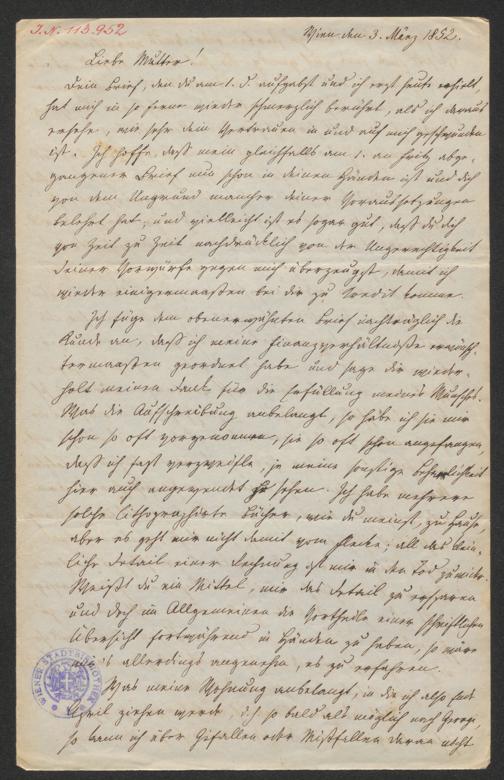 J. N. 113.952
Wien den 3. März 1852.
Liebe Mutter!
Dein Brief, den du am 1. d. aufgabst und ich erst heute erhielt,
hat mich in so ferne wieder schmerzlich berührt, als ich daraus
ersehe, wie sehr dein Vertrauen in und auf mich geschwunden
ist. Ich hoffe, daß mein gleichfalls am 1. an Fritz abge-
gangener Brief nun schon in deinen Händen ist und dich
von dem Ungrund mancher deiner Voraussetzungen
belehrt hat, und vielleicht ist es sogar gut, daß du dich
von Zeit zu Zeit nachdrücklich von der Ungerechtigkeit
deiner Vorwürfe gegen mich überzeugst, damit ich
wieder einigermaaßen bei dir zu Credit komme.
Ich füge dem obenerwähnten Brief nachträglich die
Kunde an, daß ich meine Finanzverhältnisse erwünsch-
termaaßen geordnet habe und sage dir wieder-
holt meinen Dank für die Erfüllung meines Wunsches.
Was die Aufschreibung anbelangt, so habe ich sie mir
schon so oft vorgenommen, sie so oft schon angefangen,
daß ich fast verzweifle, je meine sonstige Beharrlichkeit
hier auch angewendet zu sehen. Ich habe mehrere
solche lithographirte Bücher, wie du meinst, zu Hause,
aber es geht mir nicht damit vom Flecke; all das klein-
liche Detail einer Rechnung ist mir in den Tod zuwider.
Weißt du ein Mittel, mir das Detail zu ersparen
und doch im Allgemeinen die Vortheile einer schriftlichen
Übersicht fortwährend in Händen zu haben, so wäre
mir's allerdings angenehm, es zu erfahren.
Was meine Wohnung anbelangt, in die ich also Ende
April ziehen werde, d. h. so bald als möglich nach Georgi,
so kann ich über Gefallen oder Mißfallen daran nicht
WIENER STADTBIBLIOTHEK